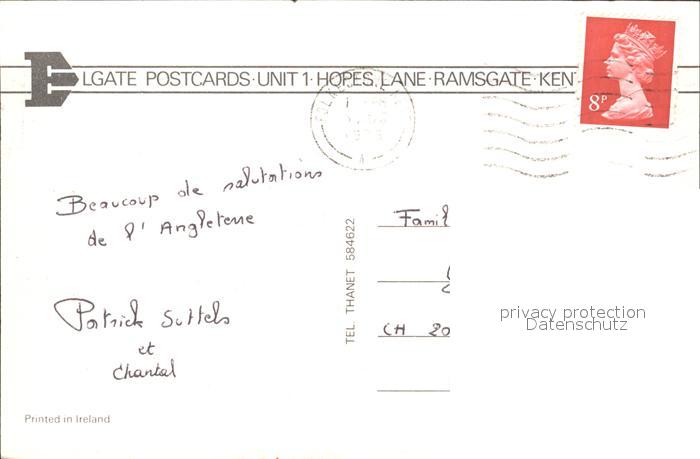 ELGATE POSTCARDS·UNIT 1·HOPES LANE·RAMSGATE·KENT
8P
Beaucoup de salutations
de l'Angleterre
Patrick Suttels
et
Chantal
TEL. THANET 584622
Famil
CH 20
privacy protection
Datenschutz
Printed in Ireland